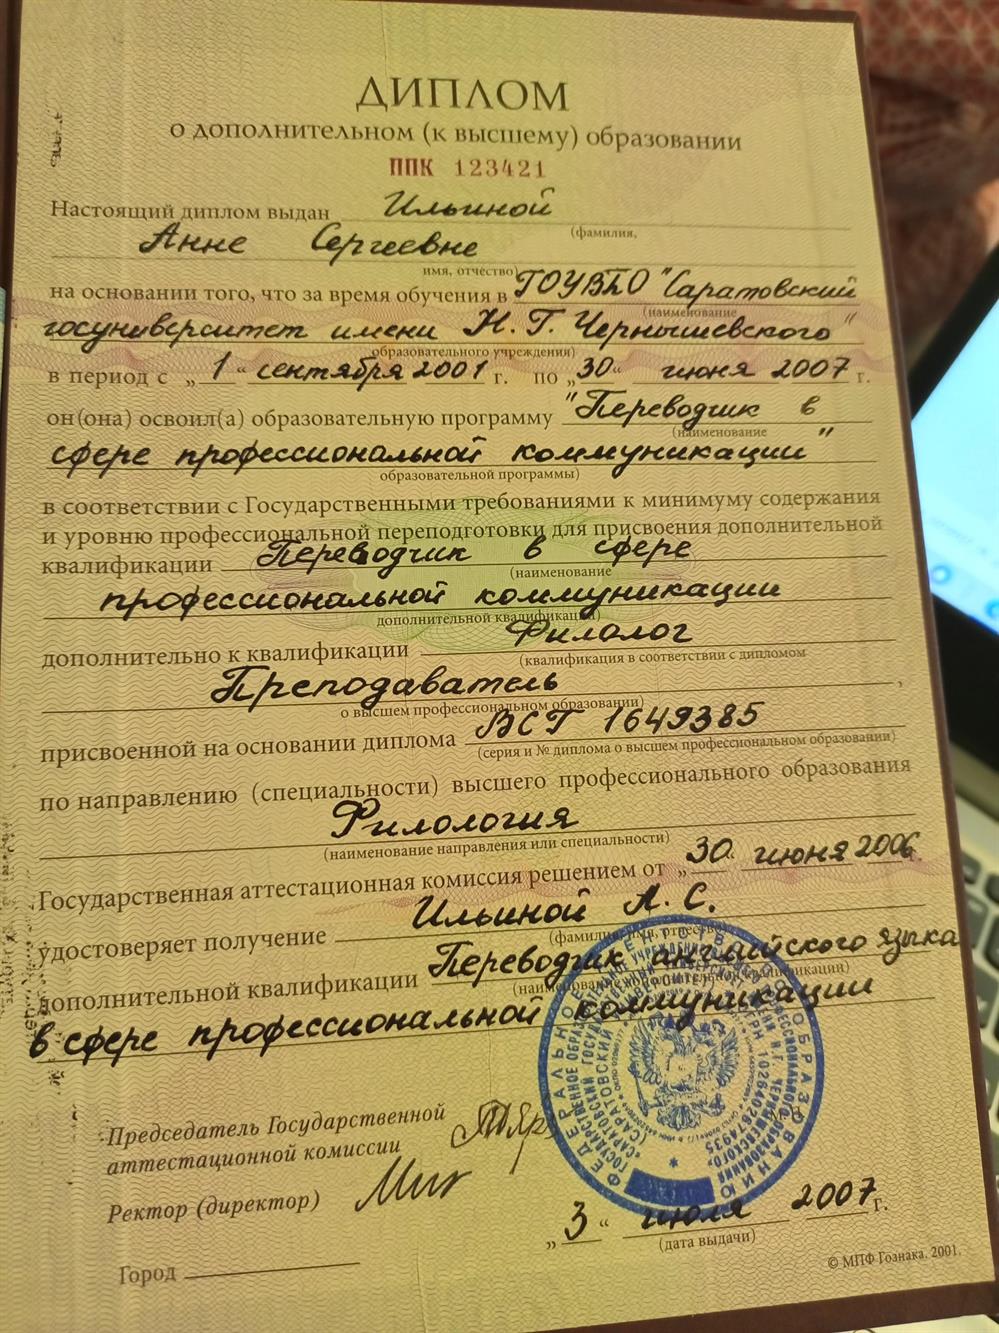 ДИПЛОМ
о дополнительном (к высшему) образовании
ППК 123421
Настоящий диплом выдан Ильиной
(фамилия,
Анне Сергеевне
имя, отчество)
на основании того, что за время обучения в ГОУВПО "Саратовский
(наименование
госуниверситет имени Н. Г. Чернышевского"
образовательного учреждения)
в период с „1“ сентября 2001 г. по „30“ июня 2007 г.
он(она) освоил(а) образовательную программу "Переводчик в
(наименование
сфере профессиональной коммуникации"
образовательной программы)
в соответствии с Государственными требованиями к минимуму содержания
и уровню профессиональной переподготовки для присвоения дополнительной
квалификации Переводчик в сфере
(наименование
профессиональной коммуникации
дополнительной квалификации)
дополнительно к квалификации Филолог
(квалификация в соответствии с дипломом
Преподаватель,
о высшем профессиональном образовании)
присвоенной на основании диплома ВСГ 1649385
(серия и № диплома о высшем профессиональном образовании)
по направлению (специальности) высшего профессионального образования
Филология
(наименование направления или специальности)
Государственная аттестационная комиссия решением от „30“ июня 2006
удостоверяет получение Ильиной А. С.
(фамилия, имя, отчество)
дополнительной квалификации Переводчик английского языка
(наименование дополнительной квалификации)
в сфере профессиональной коммуникации
ФЕДЕРАЛЬНОЕ ОБРАЗОВАНИЮ
ОГРН 1026402674935
Председатель Государственной
аттестационной комиссии
М.П.
Ректор (директор)
„3“ июля 2007 г.
(дата выдачи)
Город
© МПФ Гознака. 2001.